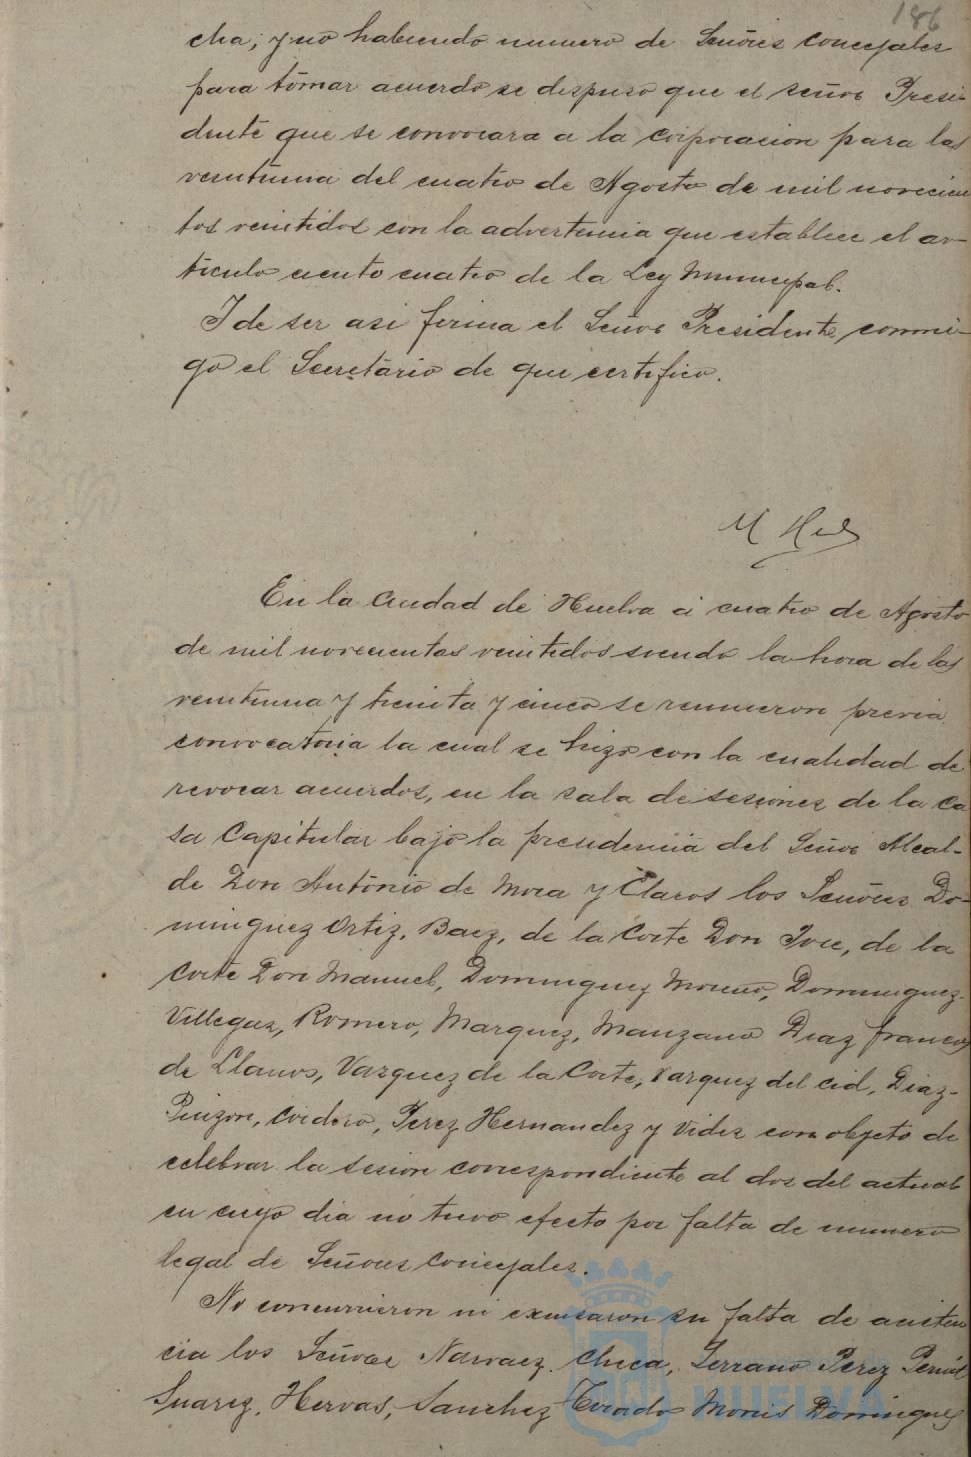 186
cha; y no habiendo numero de Señores concejales
para tomar acuerdo se dispuso que el señor Presi-
dente que se convocara a la corporacion para las
veintiuna del cuatro de Agosto de mil novecien
tos veintidos con la advertencia que establece el ar-
tículo ciento cuatro de la Ley Municipal.
I de ser asi firma el Señor Presidente conmi-
go el Secretario de que certifico.
M
En la Ciudad de Huelva á cuatro de Agosto
de mil novecientos veintidos siendo la hora de las
veintiuna y treinta y cinco se reunieron previa
convocatoria la cual se hizo con la cualidad de
revocar acuerdos, en la sala de sesiones de la Ca
sa Capitular bajo la presidencia del Señor Alcal-
de Don Antonio de Mora y Claros los Señores Do-
minguez Ortiz, Baez, de la Corte Don Jose, de la
Corte Don Manuel, Dominguez Moreno, Dominguez-
Villegas, Romero, Marquez, Manzano Diaz Franco,
de Llanos, Vazquez de la Corte, Vazquez del Cid, Diaz-
Pinzon, Cordero, Perez Hernandez y Videz con objeto de
celebrar la sesion correspondiente al dos del actual
en cuyo dia no tuvo efecto por falta de numero
legal de Señores Concejales.
No concurrieron ni excusaron su falta de asisten
cia los Señores Narvaez Checa, Serrano Perez
Suarez, Hervas, Sanchez Tirado Monis Dominguez
HUELVA